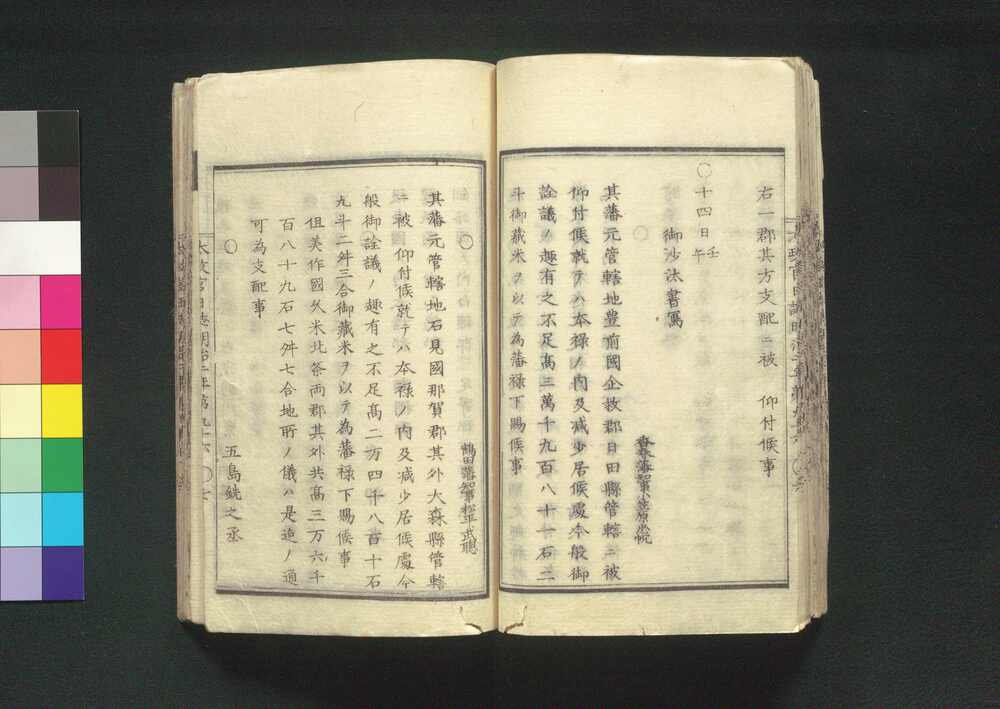 右一郡其方支配ニ被　仰付候事
〇十四日壬午
御沙汰書寫
〇
香春藩知事小笠原忠忱
其藩元管轄地豊前國企救郡日田縣管轄ニ被
仰付候就テハ本禄ノ内及減少居候處今般御
詮議ノ趣有之不足髙三萬千九百八十一石二
斗御藏米ヲ以テ為藩禄下賜候事
〇
鶴田藩知事松平武聰
其藩元管轄地石見國那賀郡其外大森縣管轄
ニ被　仰付候就テハ本禄ノ内及減少居候處今
般御詮議ノ趣有之不足髙二万四千八百十石
九斗二舛三合御藏米ヲ以テ為藩禄下賜候事
但美作國久米北条両郡其外共髙三万六千
百八十九石七舛七合地所ノ儀ハ是迠ノ通
可為支配事
〇
五島銑之丞
太政官日誌明治二年第九十六